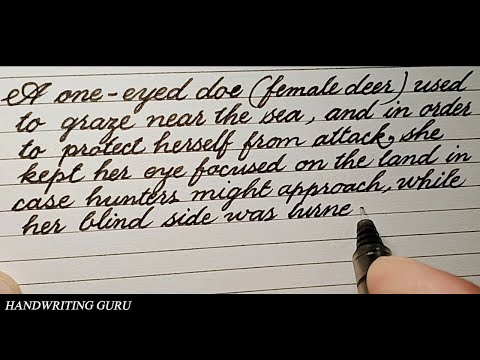 A one-eyed doe (female deer) used
to graze near the sea, and in order
to protect herself from attack, she
kept her eye focused on the land in
case hunters might approach, while
her blind side was turne
HANDWRITING GURU